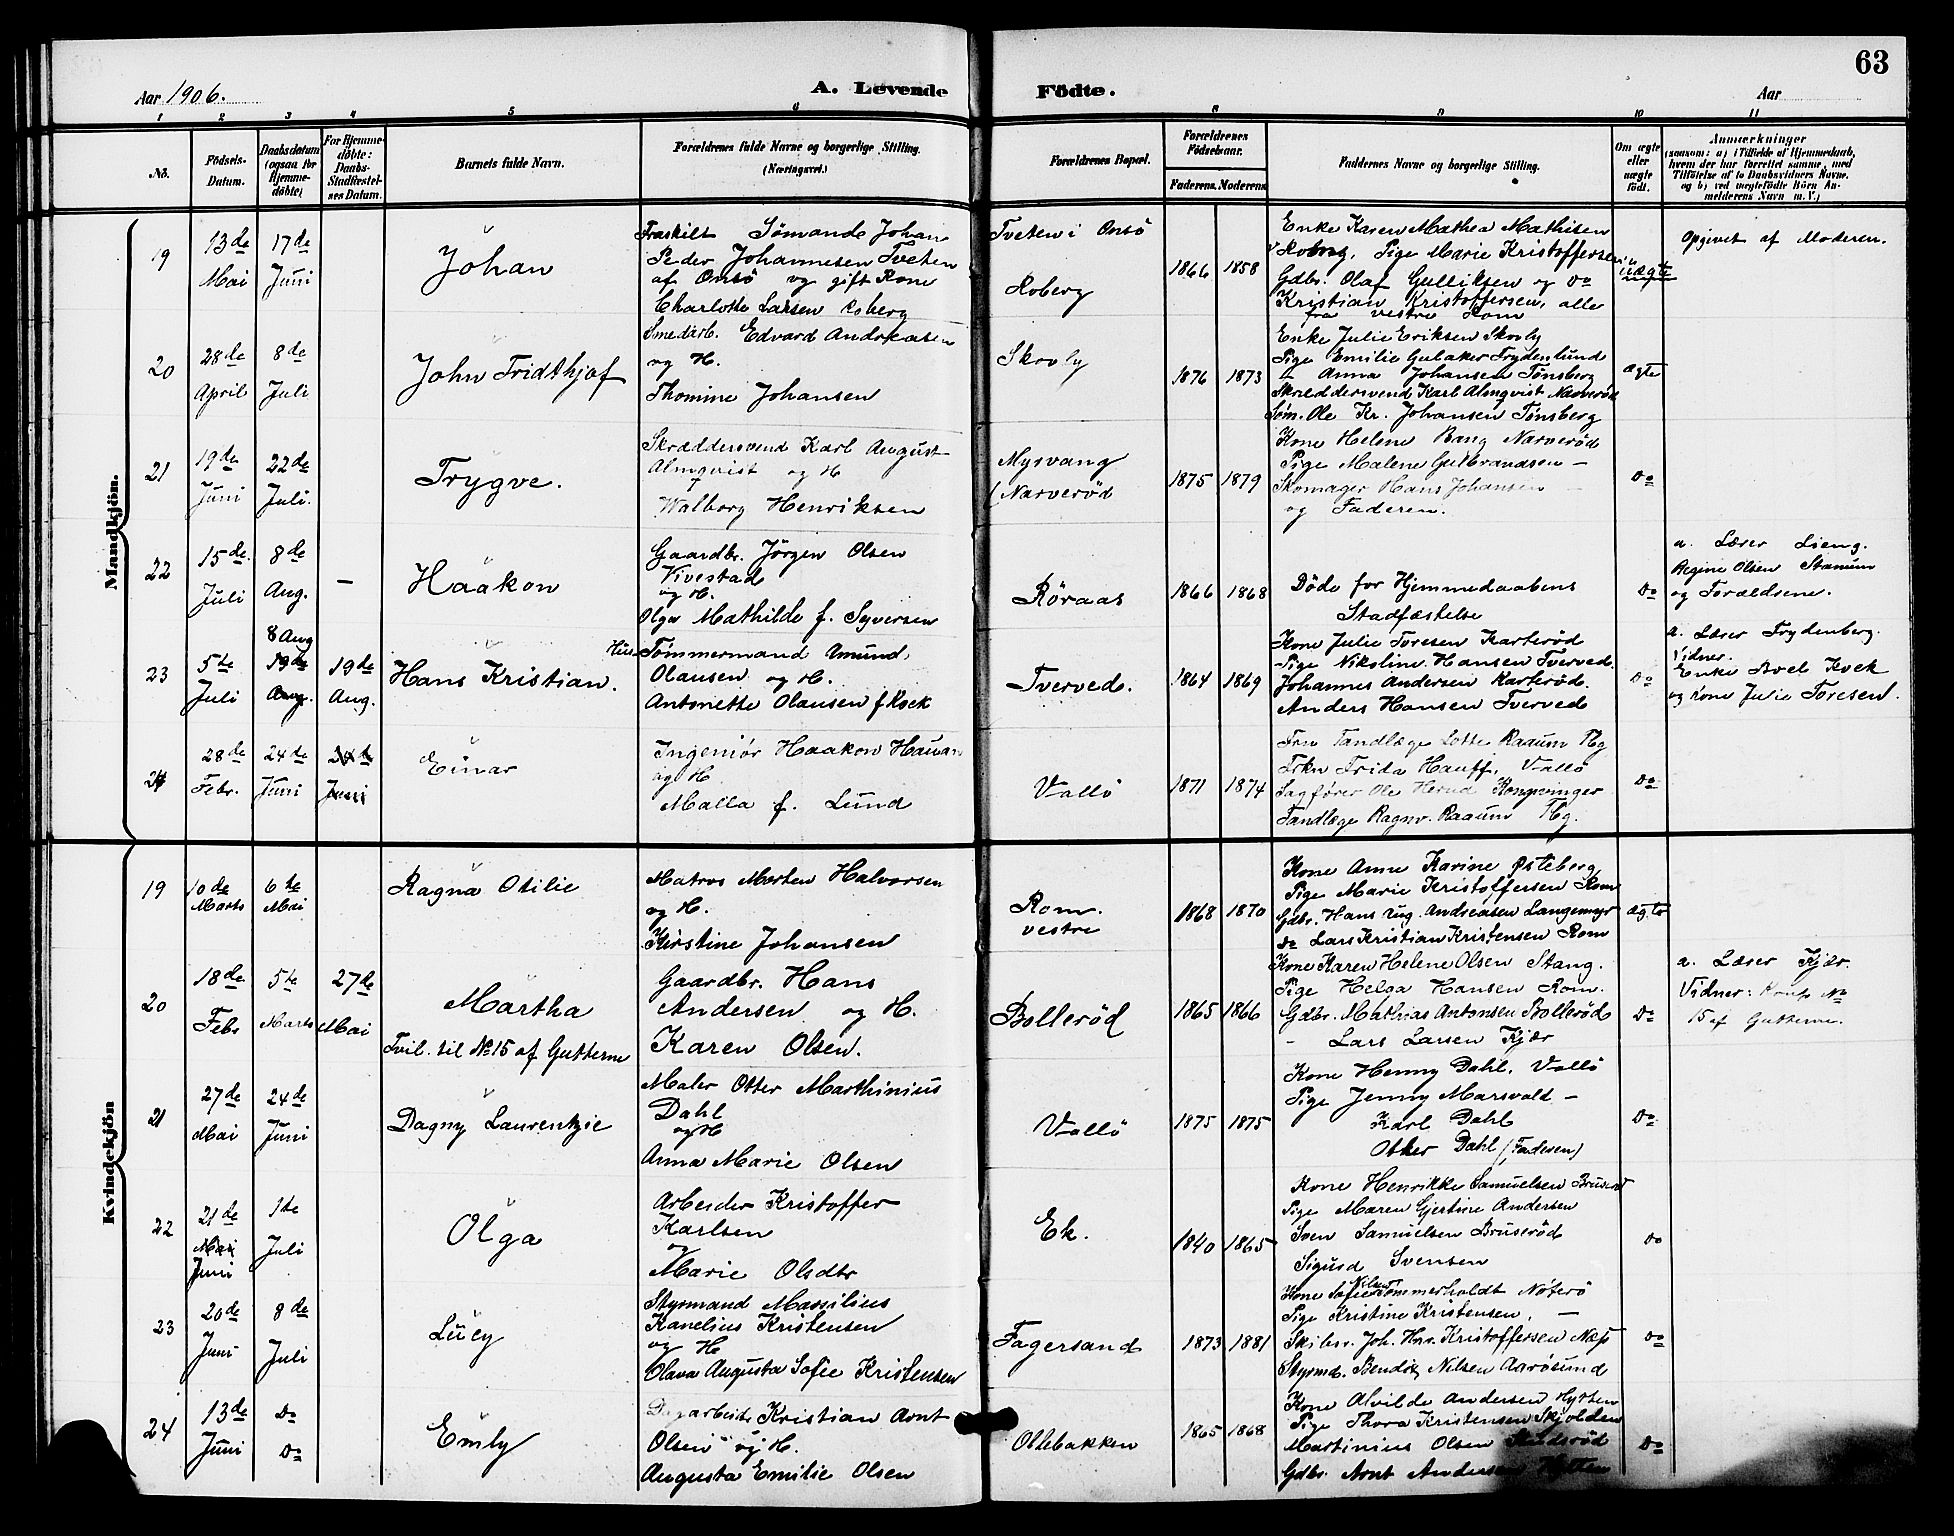 63
Aar 1906.
A. Levende Födte.
Aar
1 2 3 4 5 6 8 9 10 11
No.
Födsels-Datum.
Daabsdatum (ogsaa for Hjemmedöbte)
For Hjemmedöbte: Daabs-Stadfæstelses Datum.
Barnets fulde Navn.
Forældrenes fulde Navne og borgerlige Stilling. (Næringsvei.)
Forældrenes Bopæl.
Forældrenes Födselsaar.
Faderens. Moderens
Faddernes Navne og borgerlige Stilling.
Om ægte eller uægte födt.
Anmærkninger
(saasom: a) i Tilfælde af Hjemmedaab, hvem der har forrettet samme, med Tilföielse af to Daabsvidners Navne, og b) ved uægtefödte Börn Anmelderens Navn m. V.)
Mandkjön.
19 13de Mai 17de Juni
Johan
Fraskilt Sömand Johan
Peder Johannesen Tveten
af Onsö og gift Kone
Charlotte Larsen Roberg
Tveten i Onsö
Roberg
1866 1858
Enke Karen Mathea Mathisen
Roberg, Pige Marie Kristoffersen
Gdbr. Olaf Gulliksen og Do
Kristian Kristoffersen, alle
fra vestre Rom
uægte
Opgivet af Moderen.
20 28de April 8de Juli
John Fridthjof
Smedarb. Edvard Andreasen
og H.
Thomine Johansen
Skovly
1876 1873
Enke Julie Eriksen Skovly
Pige Emilie Gulaker Frydenlund
– Anna Johansen Tønsberg
Skræddersvend Karl Almqvist Narverød
Søm. Ole Kr. Johansen Tønsberg
ægte
21 19de Juni 22de Juli.
Trygve.
Skræddersvend Karl August
Almqvist og H
Walborg Henriksen
Nysvang
(Narverød
1875 1879
Kone Helene Bang Narverød
Pige Malene Gulbrandsen –
Skomager Hans Johansen –
og Faderen.
Do
22 15de Juli 8de Aug. –
Haakon
Gaardbr. Jørgen Olsen
Vivestad
og H.
Olga Mathilde f. Syversen
Röraas
1866 1868
Döde før Hjemmedaabens
Stadfæstelse
Do
a. Lærer Lieng.
Regine Olsen Stamum
og Forældrene.
23 5te Juli 8 Aug 19de Aug. 19de Aug.
Hans Kristian.
Tømmermand Amund
Olausen og H.
Antonette Olausen f Kock
Tvervede.
1864 1869
Kone Julie Toresen Karterød
Pige Nikoline Hansen Tvervedt
Johannes Andersen Karterød.
Anders Hansen Tvervedt
Do
a. Lærer Frydenberg.
Vidner:
Enke Axel Kock
og Kone Julie Toresen.
24 28de Febr. 24de Juni 24de Juni
Einar
Ingeniør Haakon Hauan
og H
Malla f. Lund
Vallö
1871 1874
Fru Tandlæge Lotte Raaum Tbg
Frkn Frida Hauff, Vallö
Sagfører Ole Herud Kongsvinger
Tandlæge Ragnv. Raaum Tbg.
Do
Kvindekjön
19 10de Marts 6te Mai
Ragna Otilie
Matros Morten Halvorsen
og H.
Kirstine Johansen
Rom.
vestre
1868 1870
Kone Anne Karine Østeberg
Pige Marie Kristoffersen Rom
Gdbr. Hans Aug. Andreasen Langemyr
Do Lars Kristian Kristensen Rom
ægte
20 18de Febr 5te Marts 27de Mai
Martha
Tvil. til No 15 af Gutterne
Gaardbr. Hans
Andersen og H.
Karen Olsen.
Bollerød
1865 1866
Kone Karen Helene Olsen Stang.
Pige Helga Hansen Rom.
Gdbr. Mathias Antonsen Bollerød
– Lars Larsen Kjær
Do
a. Lærer Kjær.
Vidner: Konf No
15 af Gutterne.
21 27de Mai 24de Juni
Dagny Laurentzie
Maler Otter Marthinius
Dahl
og H
Anna Marie Olsen
Vallö
1875 1875
Kone Henny Dahl, Vallö
Pige Jenny Marsvold –
Karl Dahl
Otter Dahl (Faderen)
Do
22 21de Mai Juni 1te Juli
Olga
Arbeider Kristoffer
Karlsen
og
Marie Olsdtr
Ek.
1840 1865
Kone Henrikke Samuelsen Bruserød
Pige Maren Gjertine Andersen
Sven Samuelsen Bruserød
Sigurd Svensen
Do
23 20de Juni 8de Juli
Lucy
Styrmand Marsilius
Kanelius Kristensen
og H
Olava Augusta Sofie Kristensen
Fagersand
1873 1881
Kone Sofie Nilsen Tømmerholdt Nøterö
Pige Kristine Kristensen, –
Skibsr. Joh. Hnr. Kristoffersen Nes
Styrmd. Bendix Nilsen Aarøsund
Do
24 13de Juni Do Do
Emily
Dagarbeider Kristian Arnt
Olsen og H.
Augusta Emilie Olsen
Ollebakken
1865 1868
Kone Alvilde Andersen Hytten
Pige Thora Kristensen Skjolden
Martinius Olsen
Gdbr. Arnt Andersen Hytten
Do